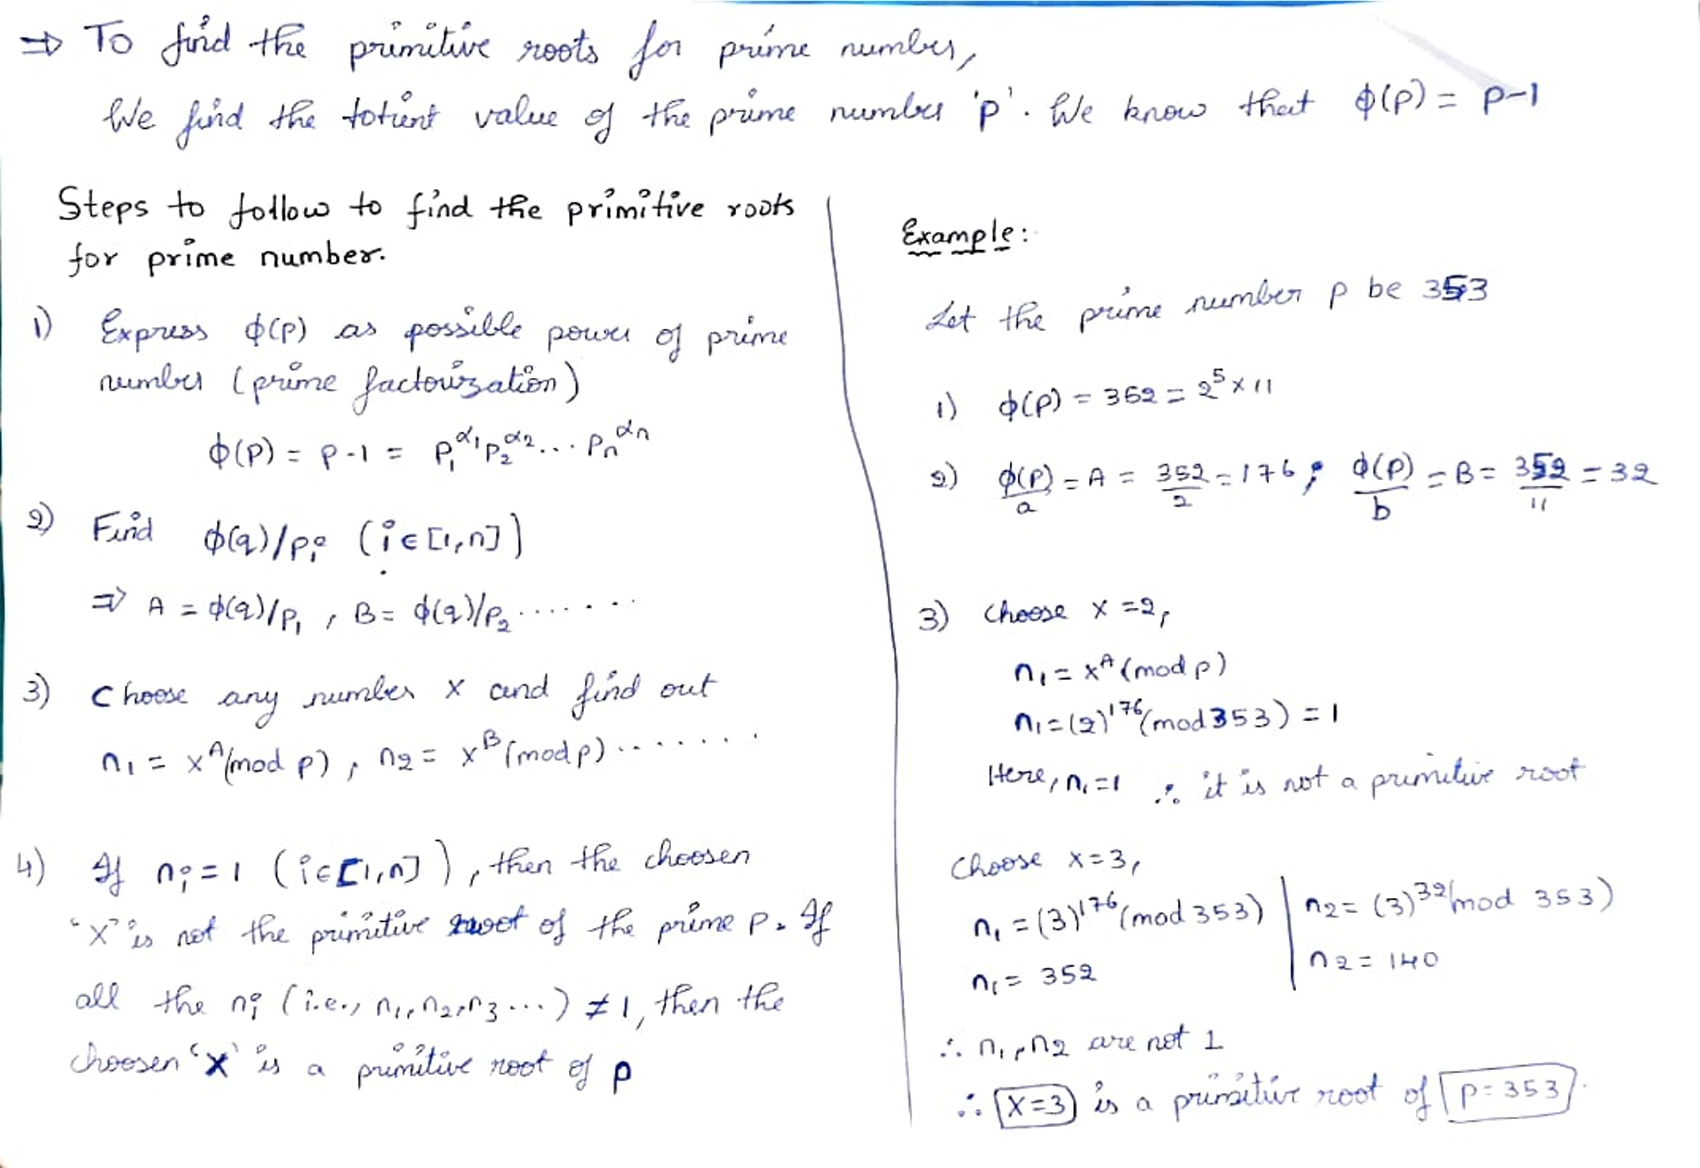 ⇒ To find the primitive roots for prime number,
We find the totient value of the prime number 'p'. We know that ϕ(p) = p-1
Steps to follow to find the primitive roots
for prime number.
1) Express ϕ(p) as possible power of prime
number (prime factorization)
ϕ(p) = p-1 = p₁^α₁ p₂^α₂ ... pₙ^αₙ
2) Find ϕ(q)/pᵢ (i∈[1,n])
⇒ A = ϕ(q)/p₁ , B = ϕ(q)/p₂ .......
3) Choose any number x and find out
n₁ = x^A (mod p) , n₂ = x^B (mod p) .......
4) If nᵢ = 1 (i∈[1,n]), then the choosen
"x" is not the primitive root of the prime p. If
all the nᵢ (i.e., n₁, n₂, n₃ ...) ≠ 1, then the
choosen 'x' is a primitive root of p
Example:
Let the prime number p be 353
1) ϕ(p) = 352 = 2⁵ × 11
2) ϕ(p)/a = A = 352/2 = 176 ; ϕ(p)/b = B = 352/11 = 32
3) Choose x = 2,
n₁ = x^A (mod p)
n₁ = (2)^176 (mod 353) = 1
Here, n₁ = 1 ∴ it is not a primitive root
Choose x = 3,
n₁ = (3)^176 (mod 353) | n₂ = (3)^32 (mod 353)
n₁ = 352 | n₂ = 140
∴ n₁, n₂ are not 1
∴ x=3 is a primitive root of p = 353.